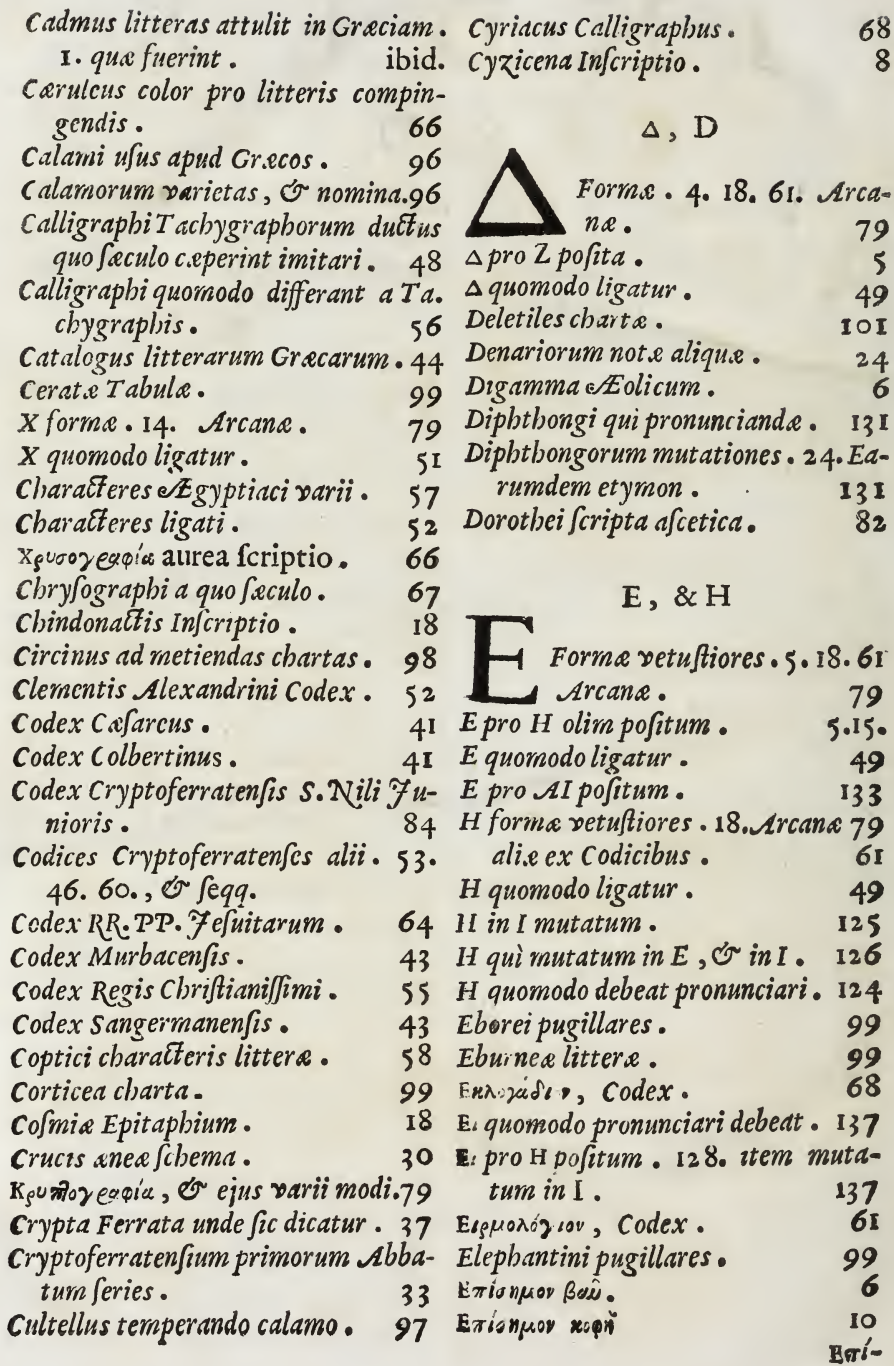 Cadmus litteras attulit in Græciam .
1. quæ fuerint . ibid.
Cæruleus color pro litteris compin-
gendis . 66
Calami uſus apud Græcos . 96
Calamorum varietas , & nomina.96
Calligraphi Tachygraphorum ductus
quo ſæculo cæperint imitari . 48
Calligraphi quomodo differant a Ta.
chygraphis . 56
Catalogus litterarum Græcarum . 44
Ceratæ Tabulæ . 99
X formæ . 14. Arcanæ . 79
X quomodo ligatur . 51
Characteres Ægyptiaci varii . 57
Characteres ligati . 52
Χρυσογραφία aurea ſcriptio . 66
Chryſographi a quo ſæculo . 67
Chindonactis Inſcriptio . 18
Circinus ad metiendas chartas . 98
Clementis Alexandrini Codex . 52
Codex Cæſareus . 41
Codex Colbertinus . 41
Codex Cryptoferratenſis S. Nili Ju-
nioris . 84
Codices Cryptoferratenſes alii . 53.
46. 60. , & ſeqq.
Codex RR. PP. Jeſuitarum . 64
Codex Murbacenſis . 43
Codex Regis Chriſtianiſſimi . 55
Codex Sangermanenſis . 43
Coptici characteris litteræ . 58
Corticea charta . 99
Coſmiæ Epitaphium . 18
Crucis æneæ ſchema . 30
Κρυπτογραφία , & ejus varii modi.79
Crypta Ferrata unde ſic dicatur . 37
Cryptoferratenſium primorum Abba-
tum ſeries . 33
Cultellus temperando calamo . 97
Cyriacus Calligraphus . 68
Cyzicena Inſcriptio . 8
Δ , D
Δ Formæ . 4. 18. 61. Arca-
næ . 79
Δ pro Z poſita . 5
Δ quomodo ligatur . 49
Deletiles chartæ . 101
Denariorum notæ aliquæ . 24
Digamma Æolicum . 6
Diphthongi qui pronunciandæ . 131
Diphthongorum mutationes . 24. Ea-
rumdem etymon . 131
Dorothei ſcripta aſcetica . 82
E , & H
E Formæ vetuſtiores . 5. 18. 61
Arcanæ . 79
E pro H olim poſitum . 5.15.
E quomodo ligatur . 49
E pro AI poſitum . 133
H formæ vetuſtiores . 18. Arcanæ 79
aliæ ex Codicibus . 61
H quomodo ligatur . 49
H in I mutatum . 125
H quì mutatum in E , & in I . 126
H quomodo debeat pronunciari . 124
Eborei pugillares . 99
Eburneæ litteræ . 99
Εκλογάδιον , Codex . 68
Ει quomodo pronunciari debeat . 137
Ει pro H poſitum . 128. item muta-
tum in I . 137
Ειρμολόγιον , Codex . 61
Elephantini pugillares . 99
Επίσημον βαῦ . 6
Επίσημον κοφῆ 10
Επί-